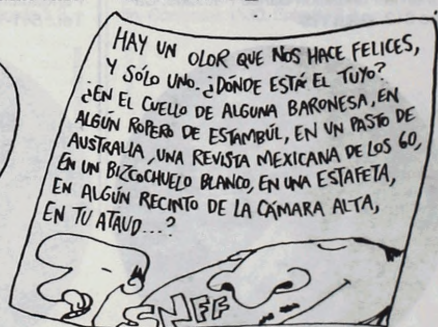 HAY UN OLOR QUE NOS HACE FELICES,
Y SÓLO UNO. ¿DÓNDE ESTÁ EL TUYO?
¿EN EL CUELLO DE ALGUNA BARONESA, EN
ALGÚN ROPERO DE ESTAMBÚL, EN UN PASTO DE
AUSTRALIA, UNA REVISTA MEXICANA DE LOS 60,
EN UN BIZCOCHUELO BLANCO, EN UNA ESTAFETA,
EN ALGÚN RECINTO DE LA CÁMARA ALTA,
EN TU ATAUD...?
SNFF